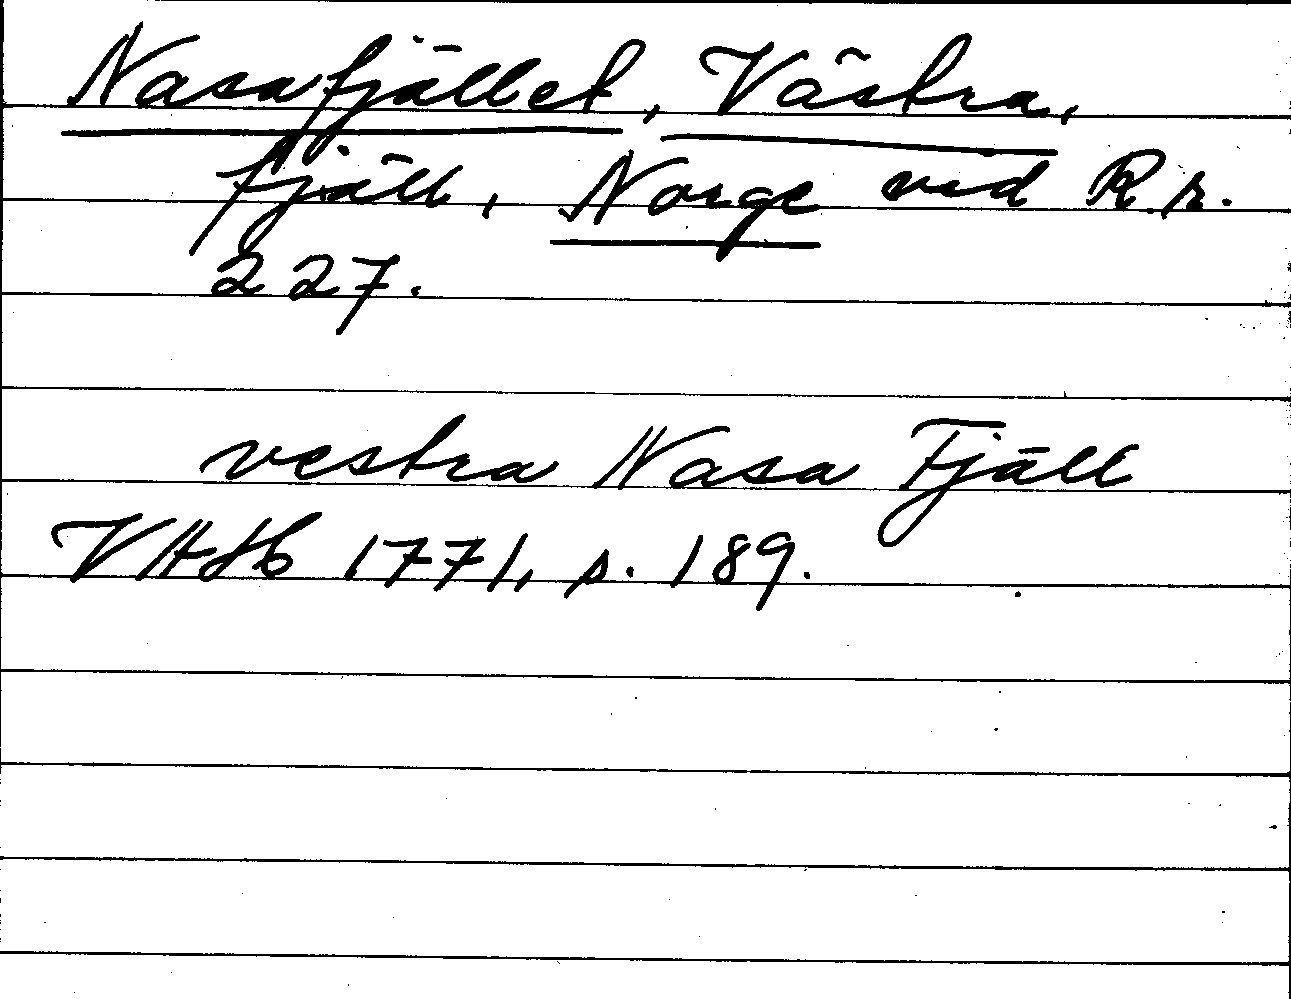 Nasafjället, Västra,
fjäll, Norge vid R.r.
227.
vestra Nasa Fjäll
VHAH 1771, s. 189.